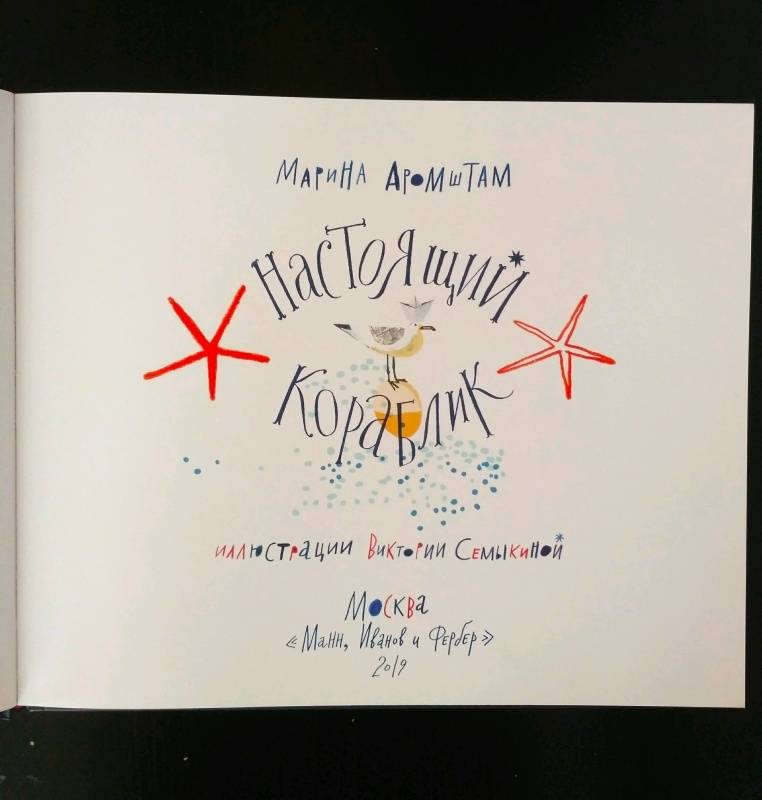 Марина Аромштам
Настоящий
Кораблик
иллюстрации Виктории Семыкиной
Москва
«Манн, Иванов и Фербер»
2019